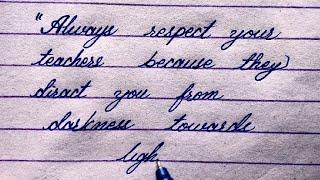 "Always respect your
teachers because they
diract you from
darkness towards
ligh